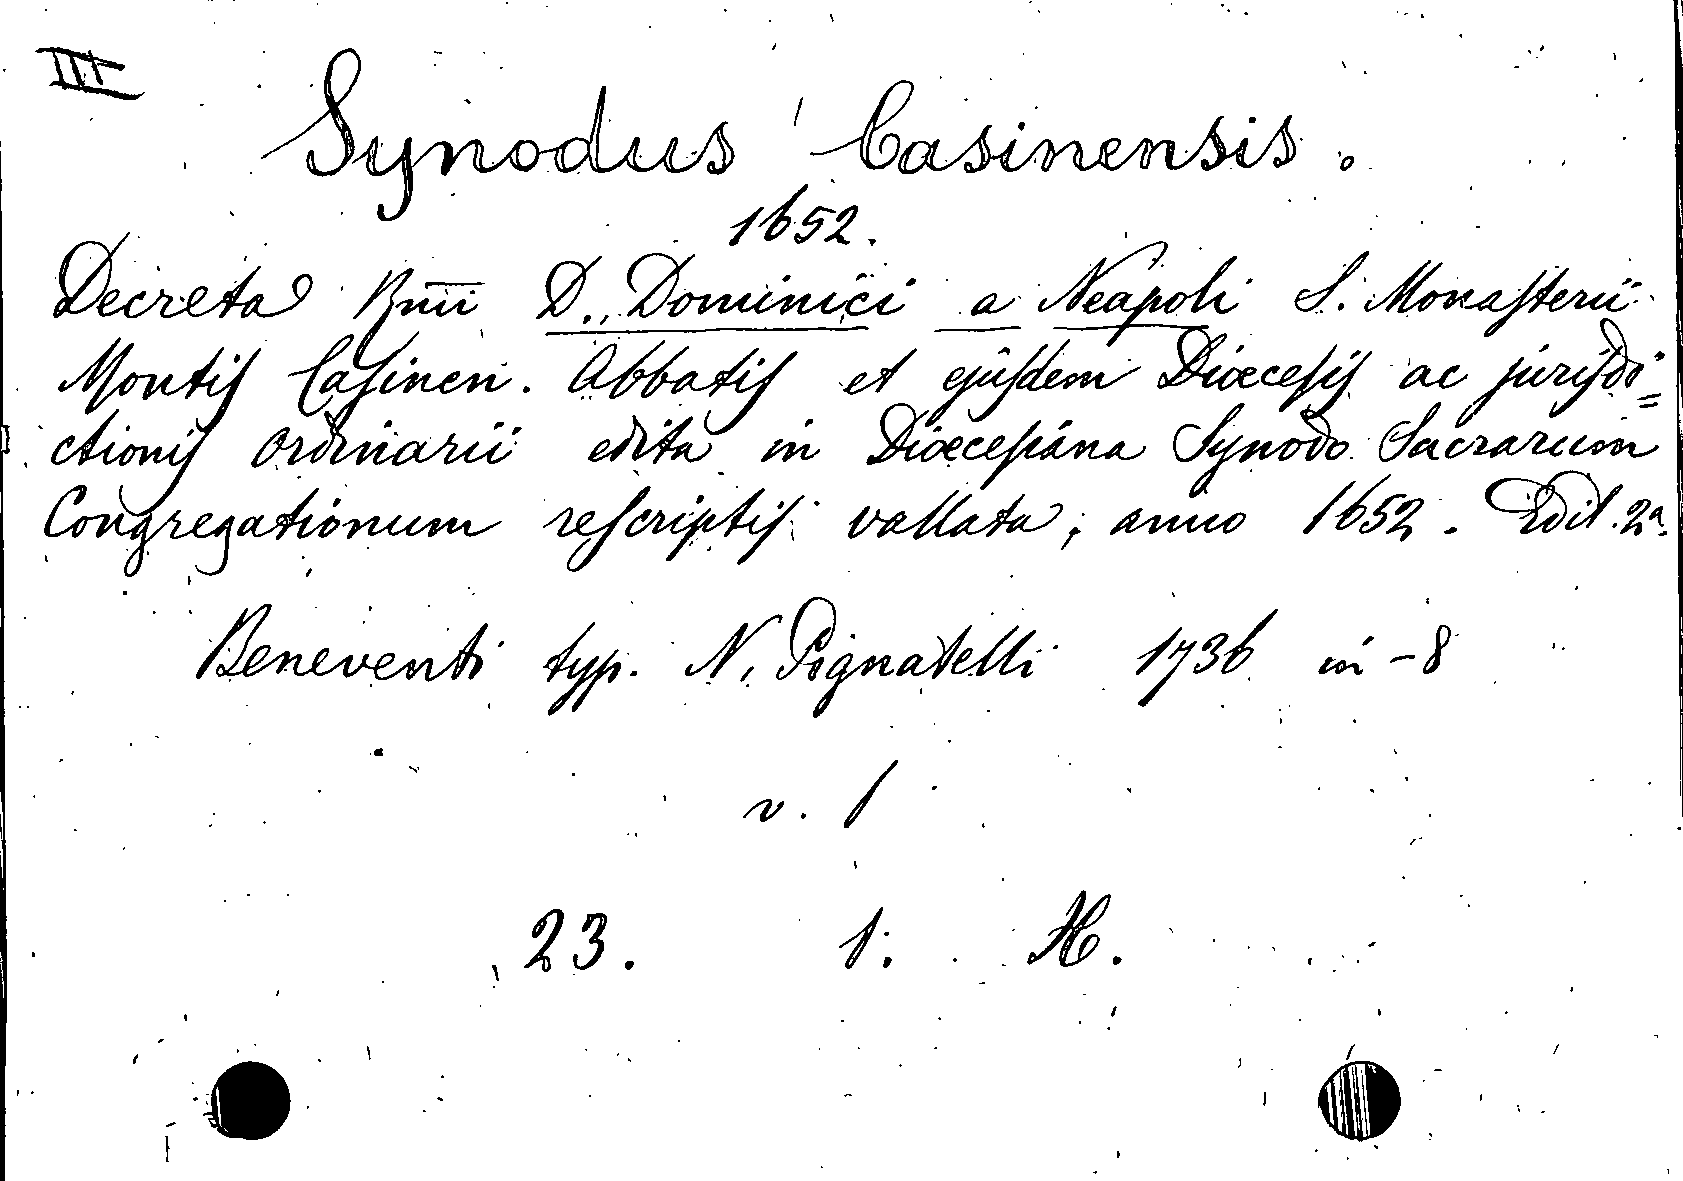 III
Synodus Casinensis.
1652.
Decreta Rmi D. Dominici a Neapoli S. Monaſterii
Montiſ Caſinen. Abbatiſ et ejuſdem Diœceſiſ ac juriſdi=
ctioniſ ordinarii edita in Diœceſana Synodo Sacrarum
Congregationum reſcriptiſ vallata, anno 1652. Edit. 2ª.
Beneventi typ. N. Pignatelli 1736 in-8
v. 1
23. 1. H.